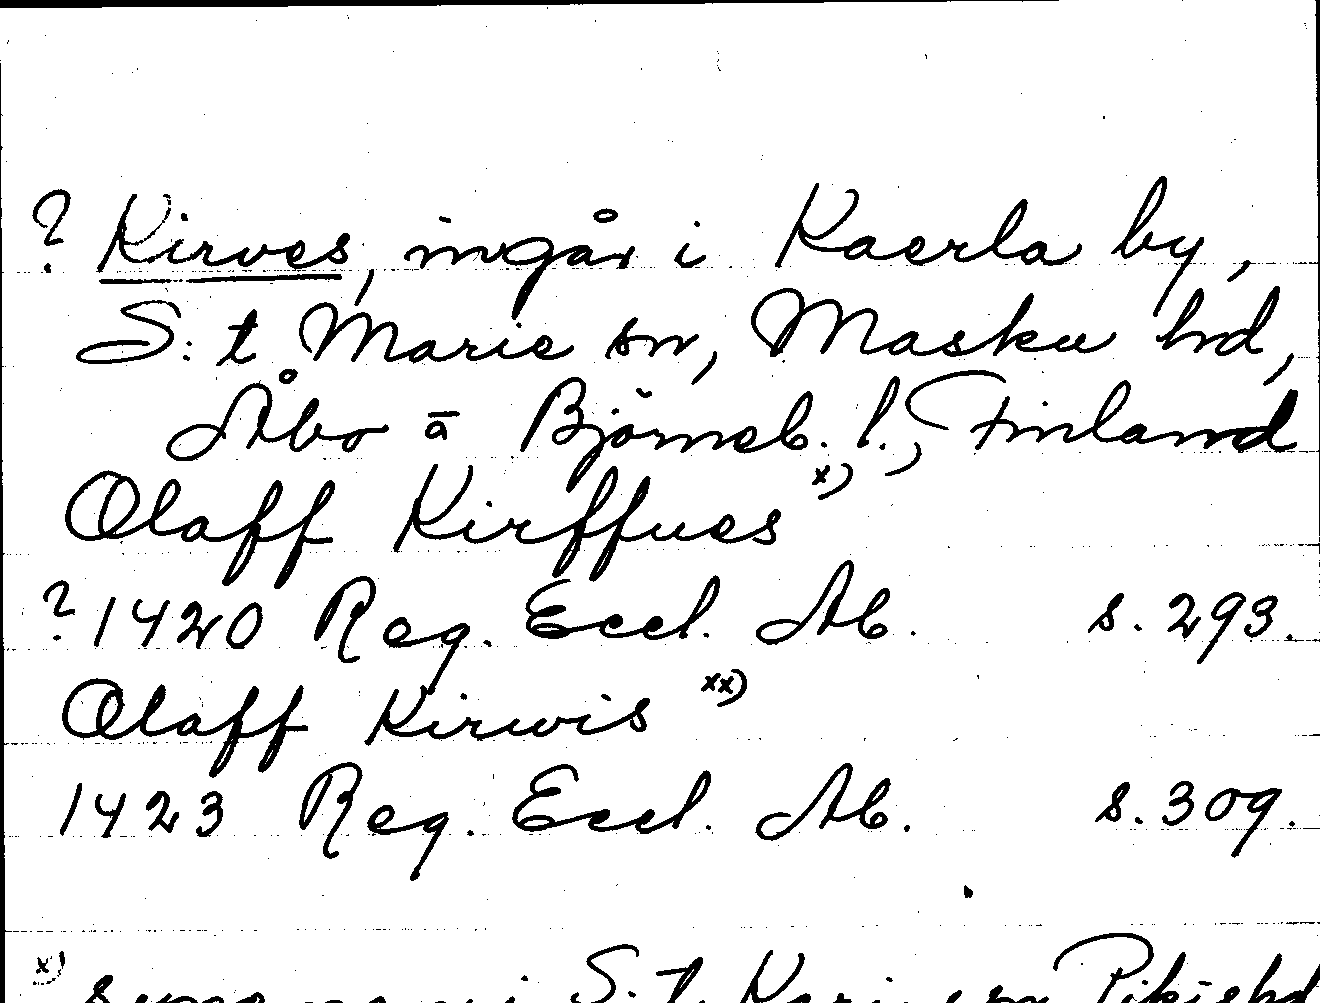 ? Kirves, ingår i Kaerla by,
S:t Marie sn, Masku hd,
Åbo ā Björneb. l., Finland
Olaff Kirffues x)
? 1420 Reg. Eccl. Ab. s. 293.
Olaff Kirwis xx)
1423 Reg. Eccl. Ab. s. 309.
x) S:t Karins sn Pikis hd